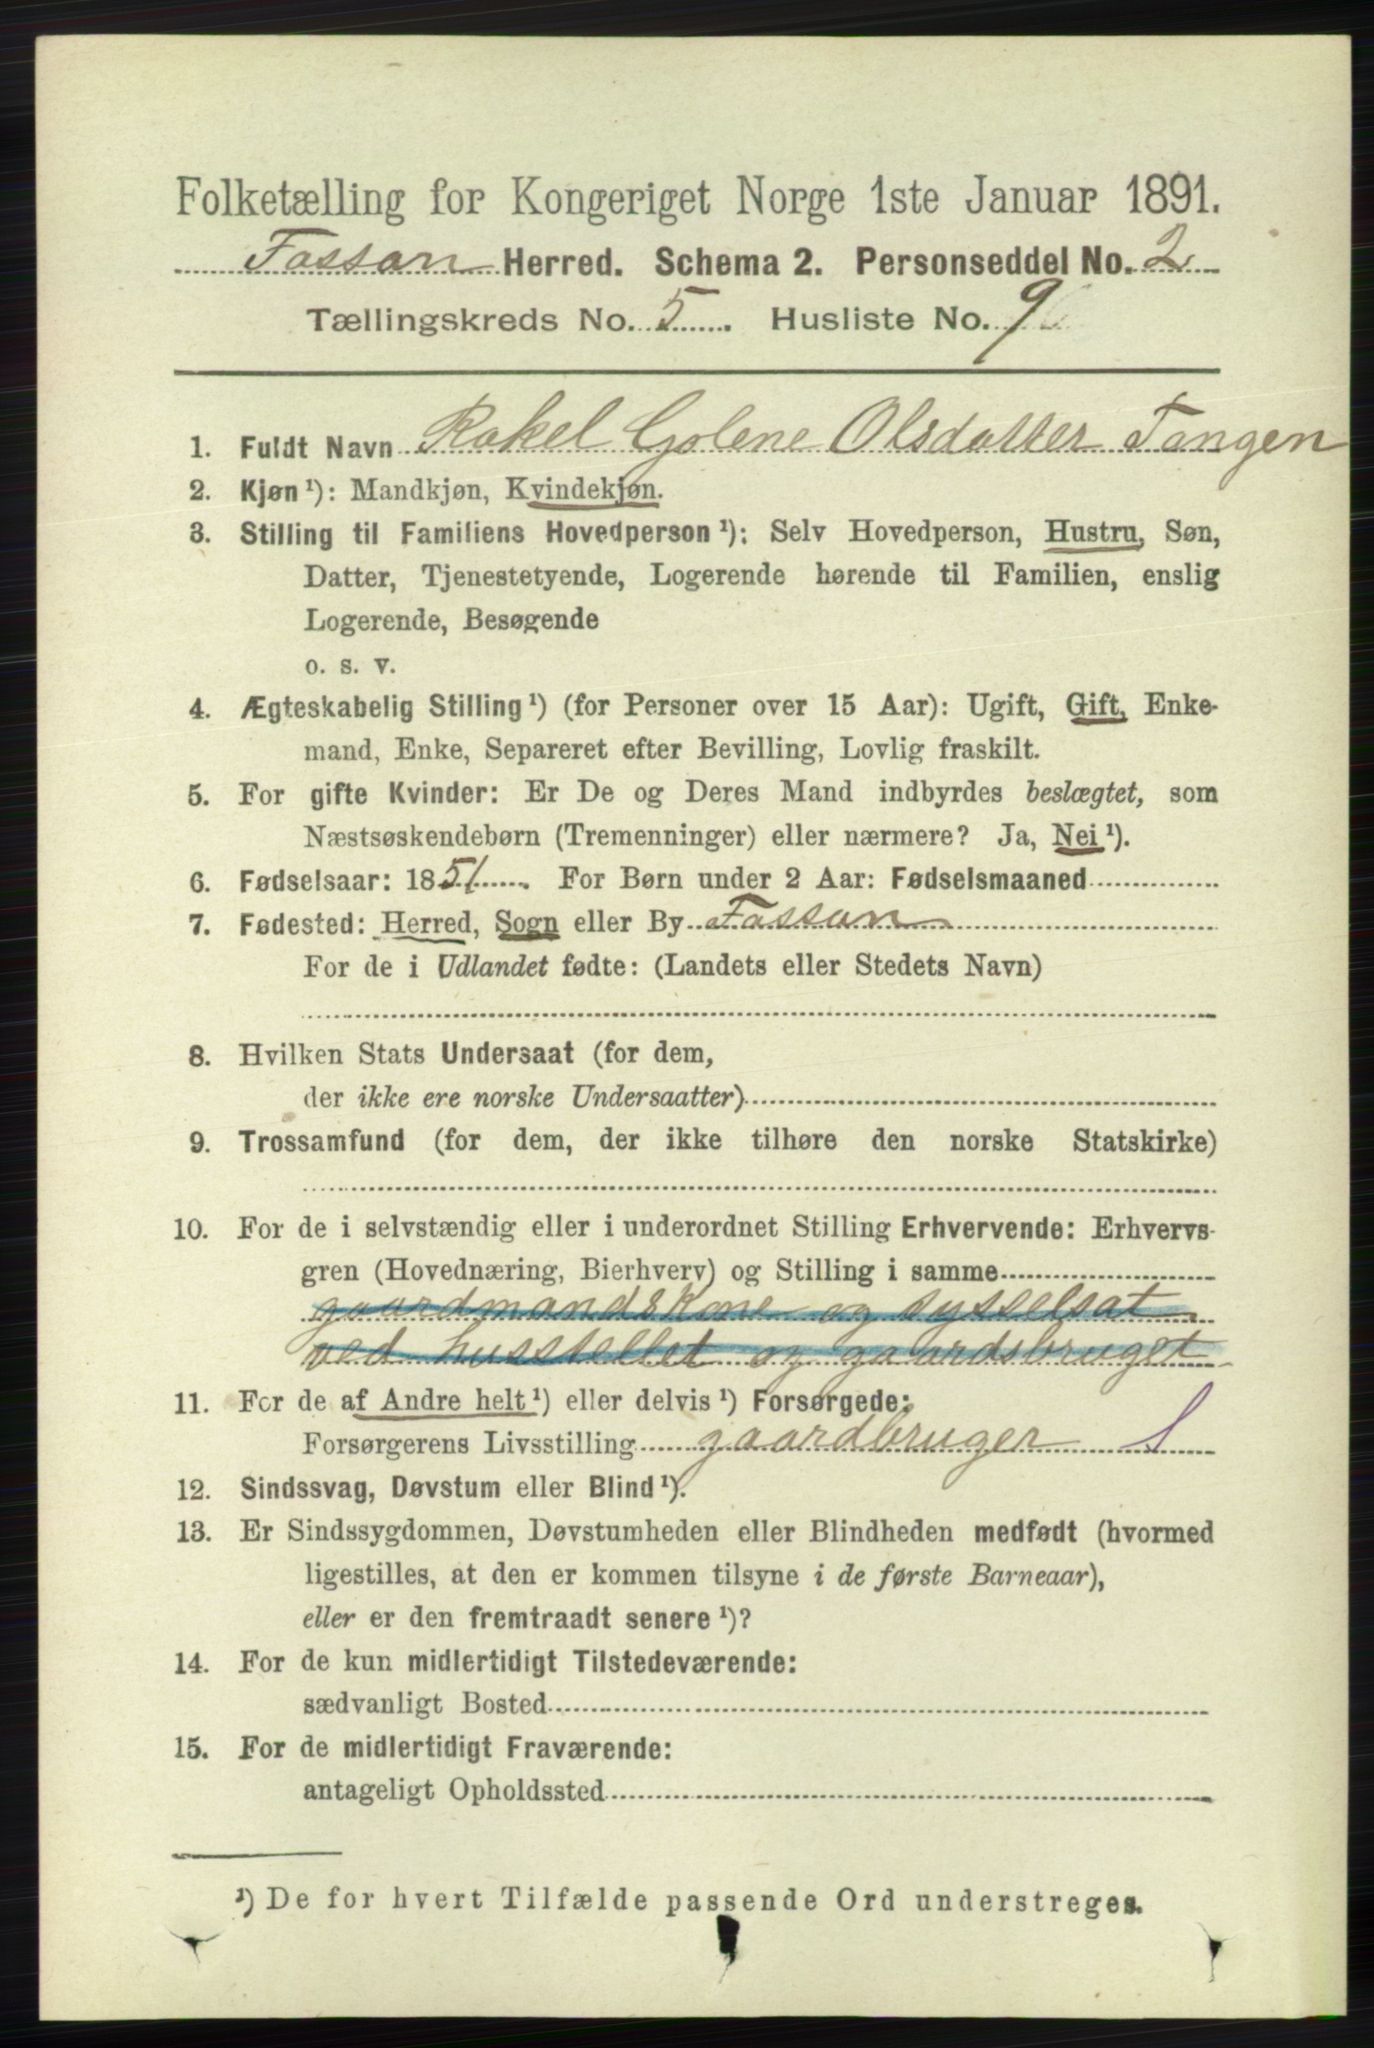 Folketælling for Kongeriget Norge 1ste Januar 1891.
Fossan Herred. Schema 2. Personseddel No. 2
Tællingskreds No. 5. Husliste No. 9
1. Fuldt Navn Rakel Golene Olsdatter Tangen
2. Kjøn ¹): Mandkjøn, Kvindekjøn.
3. Stilling til Familiens Hovedperson ¹): Selv Hovedperson, Hustru, Søn,
Datter, Tjenestetyende, Logerende hørende til Familien, enslig
Logerende, Besøgende
o. s. v.
4. Ægteskabelig Stilling ¹) (for Personer over 15 Aar): Ugift, Gift, Enke-
mand, Enke, Separeret efter Bevilling, Lovlig fraskilt.
5. For gifte Kvinder: Er De og Deres Mand indbyrdes beslægtet, som
Næstsøskendebørn (Tremenninger) eller nærmere? Ja, Nei ¹).
6. Fødselsaar: 1851. For Børn under 2 Aar: Fødselsmaaned
7. Fødested: Herred, Sogn eller By Fossan
For de i Udlandet fødte: (Landets eller Stedets Navn)
8. Hvilken Stats Undersaat (for dem,
der ikke ere norske Undersaatter)
9. Trossamfund (for dem, der ikke tilhøre den norske Statskirke)
10. For de i selvstændig eller i underordnet Stilling Erhvervende: Erhvervs-
gren (Hovednæring, Bierhverv) og Stilling i samme
gaardmandskone og sysselsat
ved husstellet og gaardsbruget
11. For de af Andre helt ¹) eller delvis ¹) Forsørgede:
Forsørgerens Livsstilling gaardbruger
12. Sindssvag, Døvstum eller Blind ¹).
13. Er Sindssygdommen, Døvstumheden eller Blindheden medfødt (hvormed
ligestilles, at den er kommen tilsyne i de første Barneaar),
eller er den fremtraadt senere ¹)?
14. For de kun midlertidigt Tilstedeværende:
sædvanligt Bosted
15. For de midlertidigt Fraværende:
antageligt Opholdssted
¹) De for hvert Tilfælde passende Ord understreges.